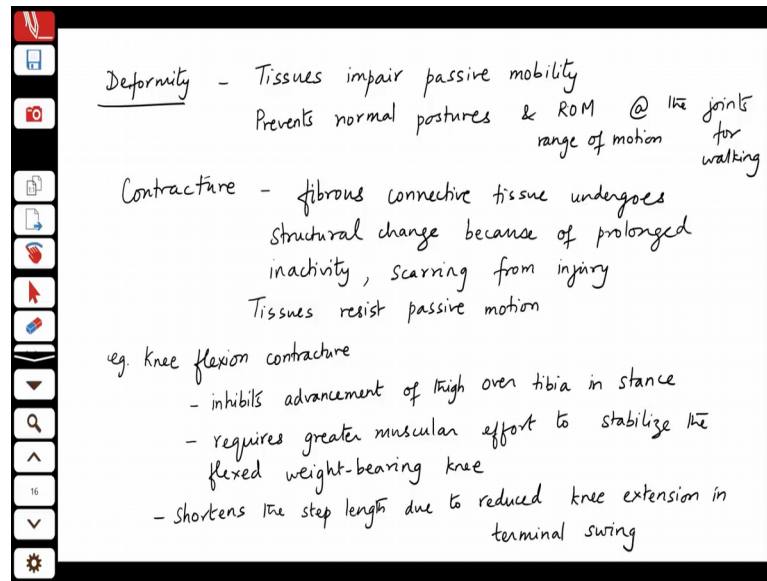 Deformity - Tissues impair passive mobility
Prevents normal postures & ROM @ the joints
range of motion for
walking
Contracture - fibrous connective tissue undergoes
structural change because of prolonged
inactivity, scarring from injury
Tissues resist passive motion
eg. Knee flexion contracture
- inhibits advancement of thigh over tibia in stance
- requires greater muscular effort to stabilize the
flexed weight-bearing knee
- Shortens the step length due to reduced knee extension in
terminal swing
16